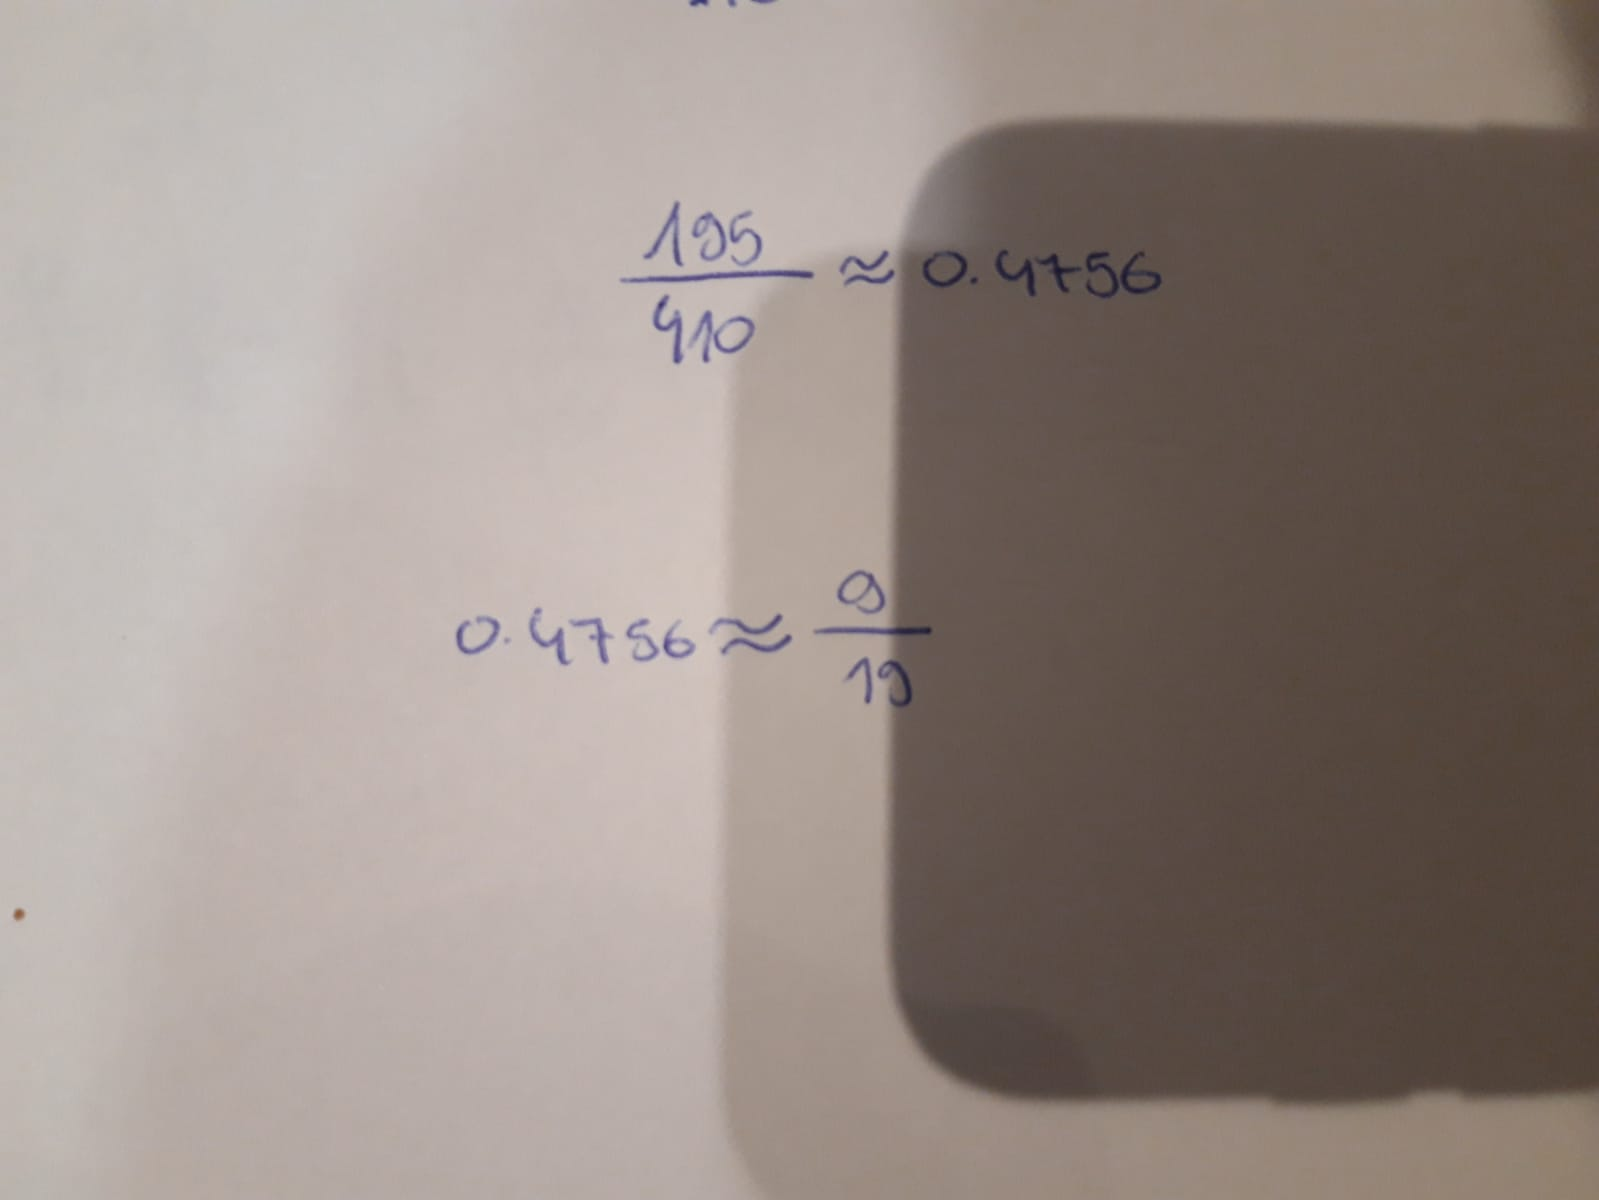 195
410
≈ 0.4756
0.4756 ≈
9
19